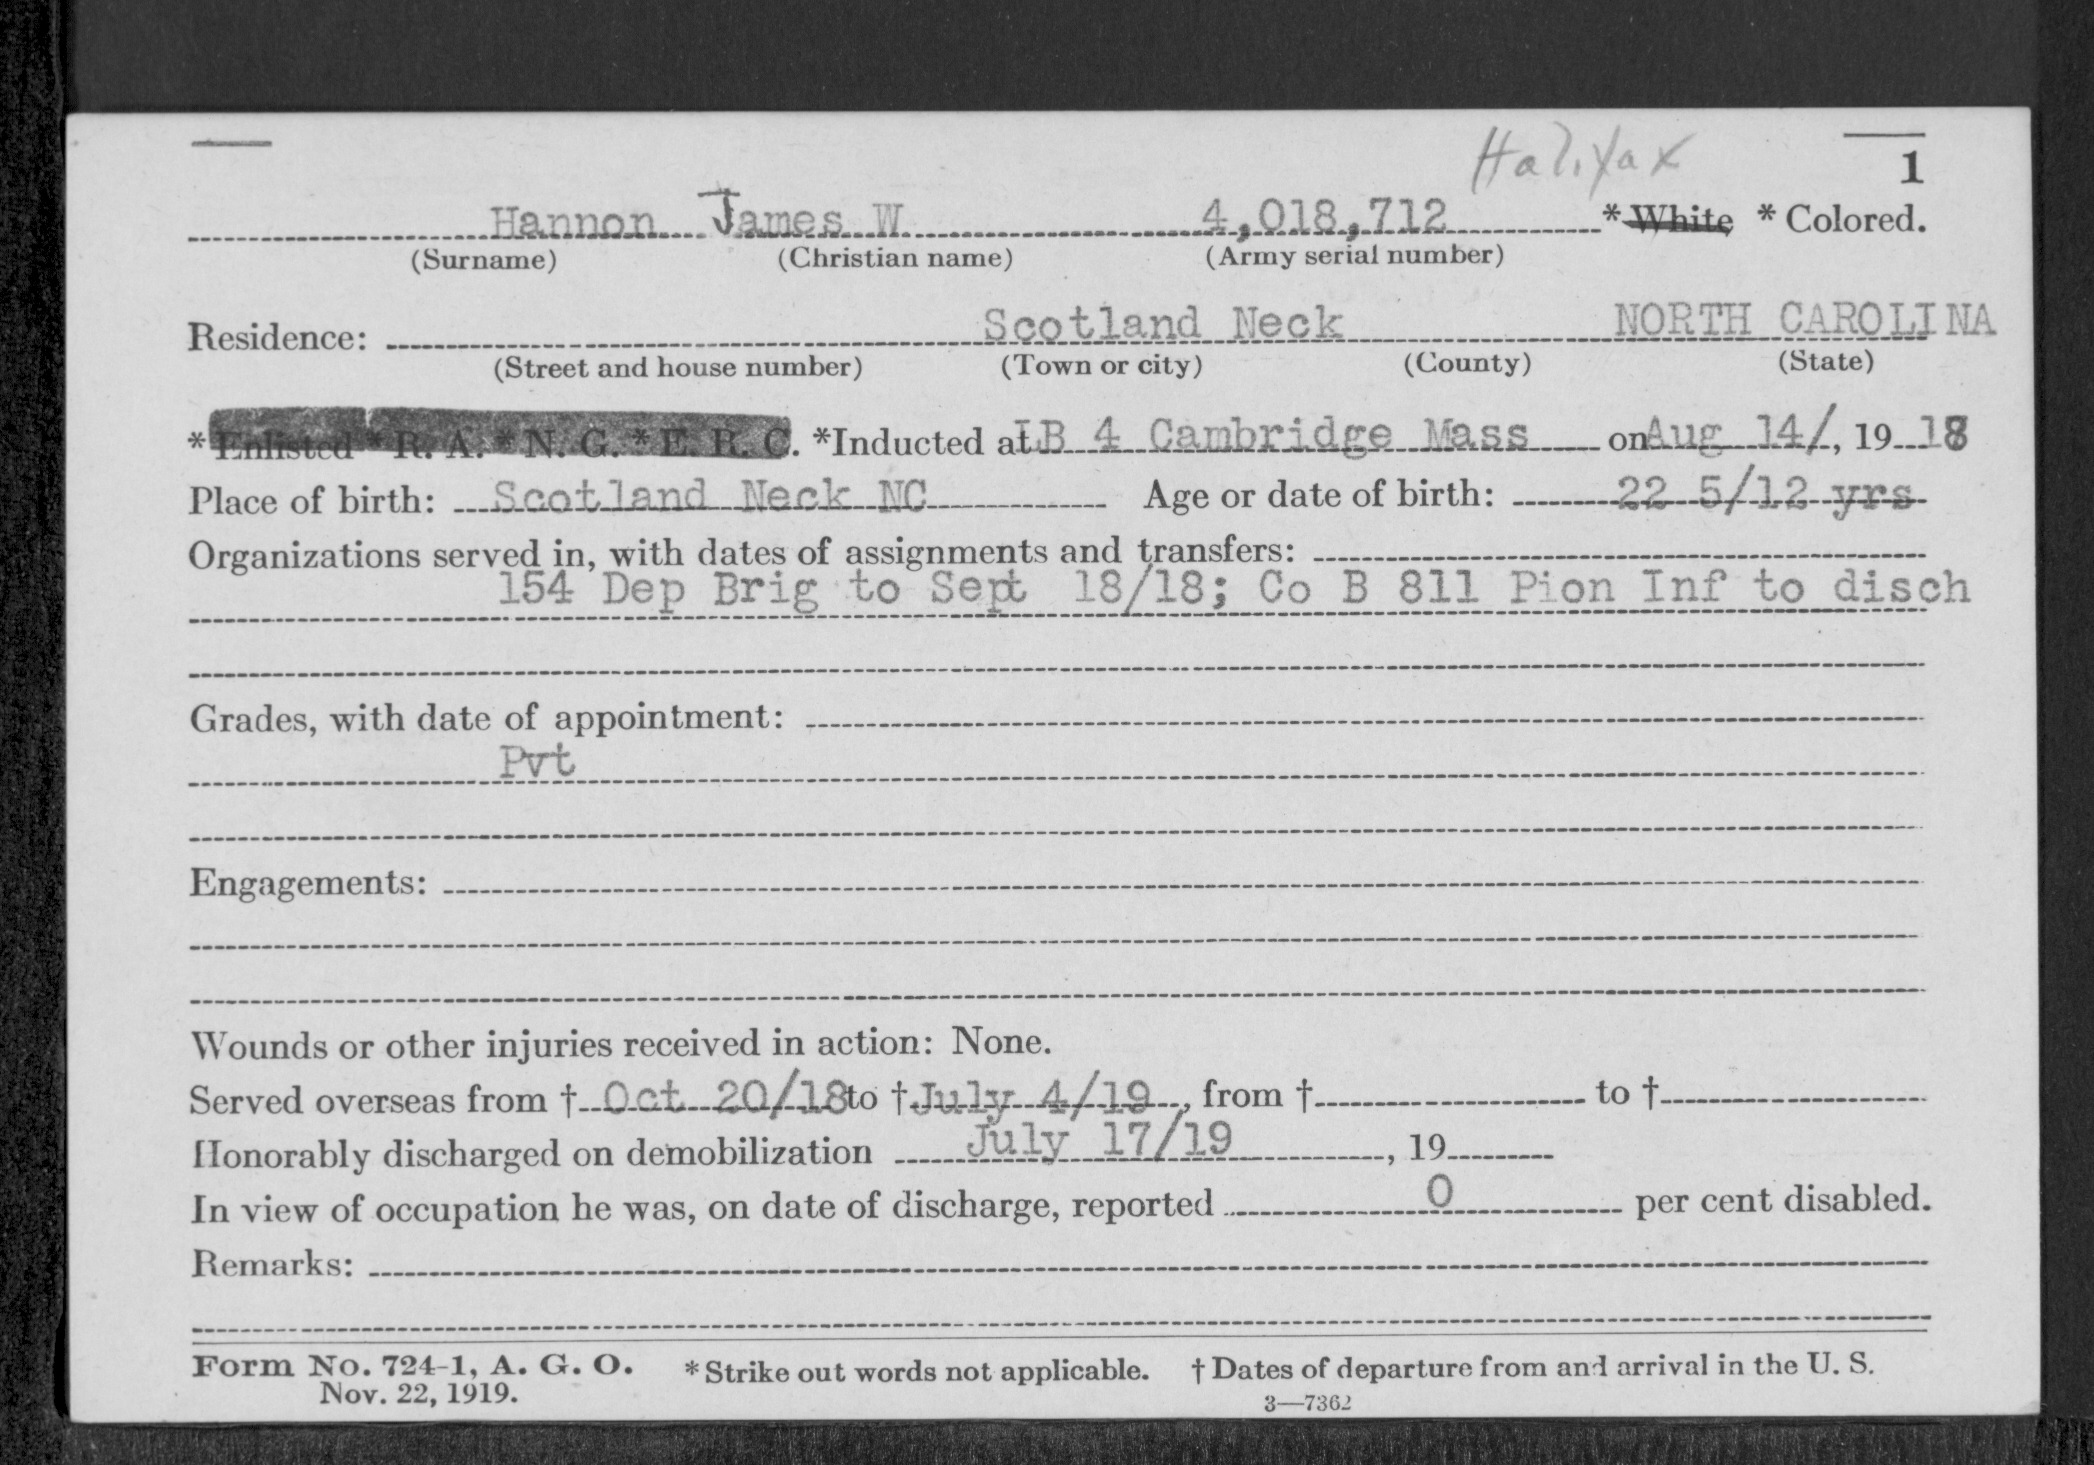 Halifax
1
Hannon James W 4,018,712 * White * Colored.
(Surname) (Christian name) (Army serial number)
Residence: Scotland Neck NORTH CAROLINA
(Street and house number) (Town or city) (County) (State)
* Enlisted * R. A. * N. G. * E. R. C. *Inducted at LB 4 Cambridge Mass on Aug 14/, 19 18
Place of birth: Scotland Neck NC Age or date of birth: 22 5/12 yrs
Organizations served in, with dates of assignments and transfers:
154 Dep Brig to Sept 18/18; Co B 811 Pion Inf to disch
Grades, with date of appointment:
Pvt
Engagements:
Wounds or other injuries received in action: None.
Served overseas from † Oct 20/18 to † July 4/19, from † to †
Honorably discharged on demobilization July 17/19, 19
In view of occupation he was, on date of discharge, reported 0 per cent disabled.
Remarks:
Form No. 724-1, A. G. O. * Strike out words not applicable. † Dates of departure from and arrival in the U. S.
Nov. 22, 1919. 3—7362